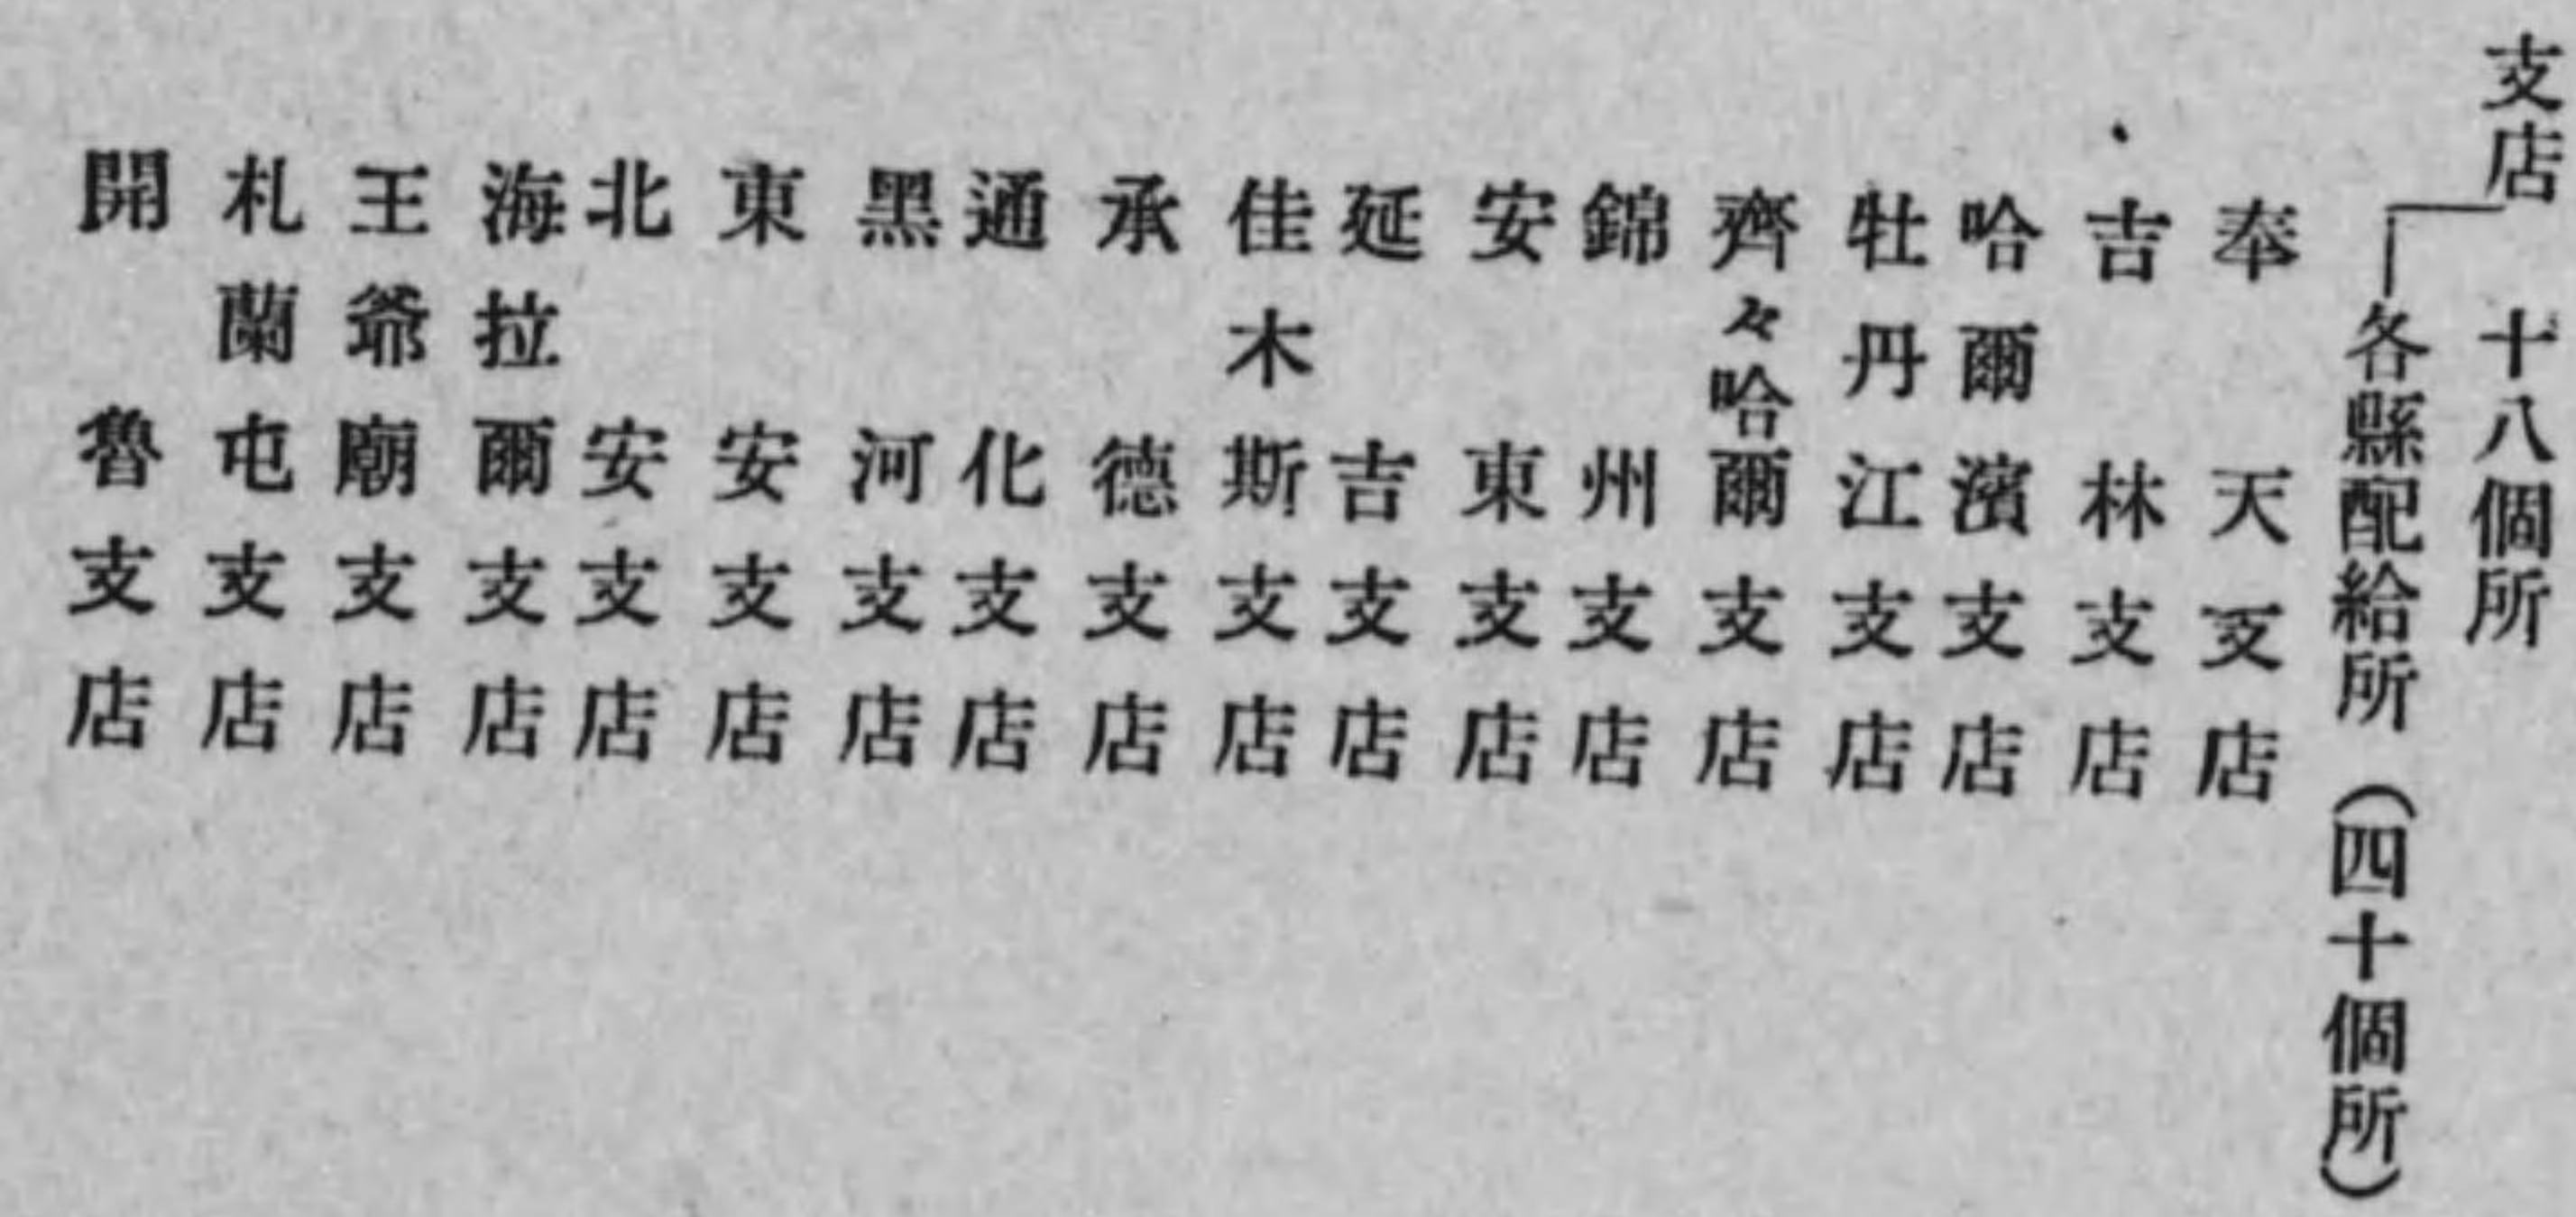 支店　十八個所
各縣配給所（四十個所）
奉天支店
吉林支店
哈爾濱支店
牡丹江支店
齊々哈爾支店
錦州支店
安東支店
延吉支店
佳木斯支店
承德支店
通化支店
黑河支店
東安支店
北安支店
海拉爾支店
王爺廟支店
札蘭屯支店
開魯支店